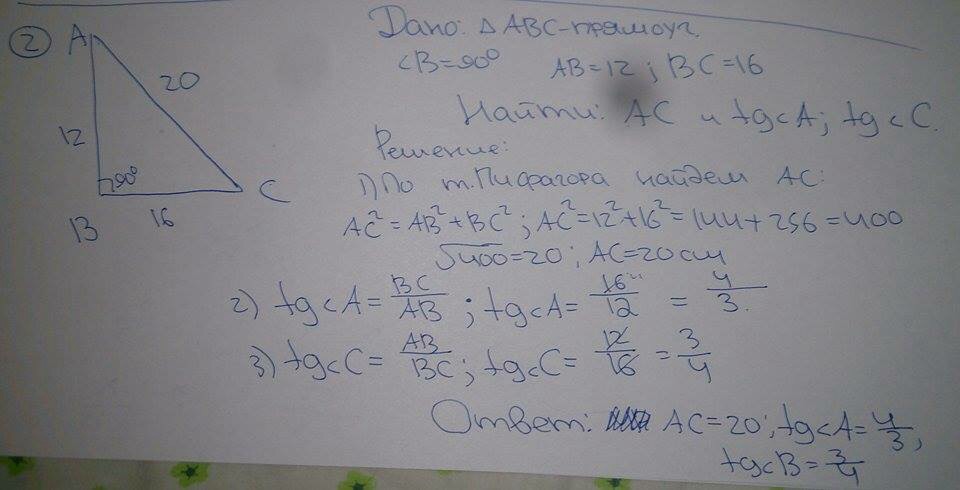 2
A
20
12
90°
B
16
C
Дано: △ABC-прямоуг.
∠B=90° AB=12; BC=16
Найти: AC и tg∠A; tg∠C.
Решение:
1) По т.Пифагора найдем AC:
AC²=AB²+BC²; AC²=12²+16²=144+256=400
√400=20; AC=20см
2) tg∠A= BC/AB; tg∠A= 16/12 = 4/3.
3) tg∠C= AB/BC; tg∠C= 12/16 = 3/4
Ответ: AC=20; tg∠A=4/3,
tg∠B=3/4